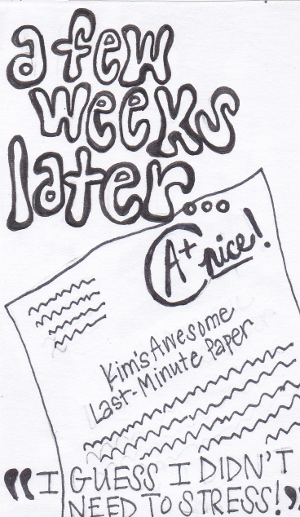 a few
weeks
later...
A+ nice!
Kim's Awesome
Last-Minute Paper
"I GUESS I DIDN'T
NEED TO STRESS!"